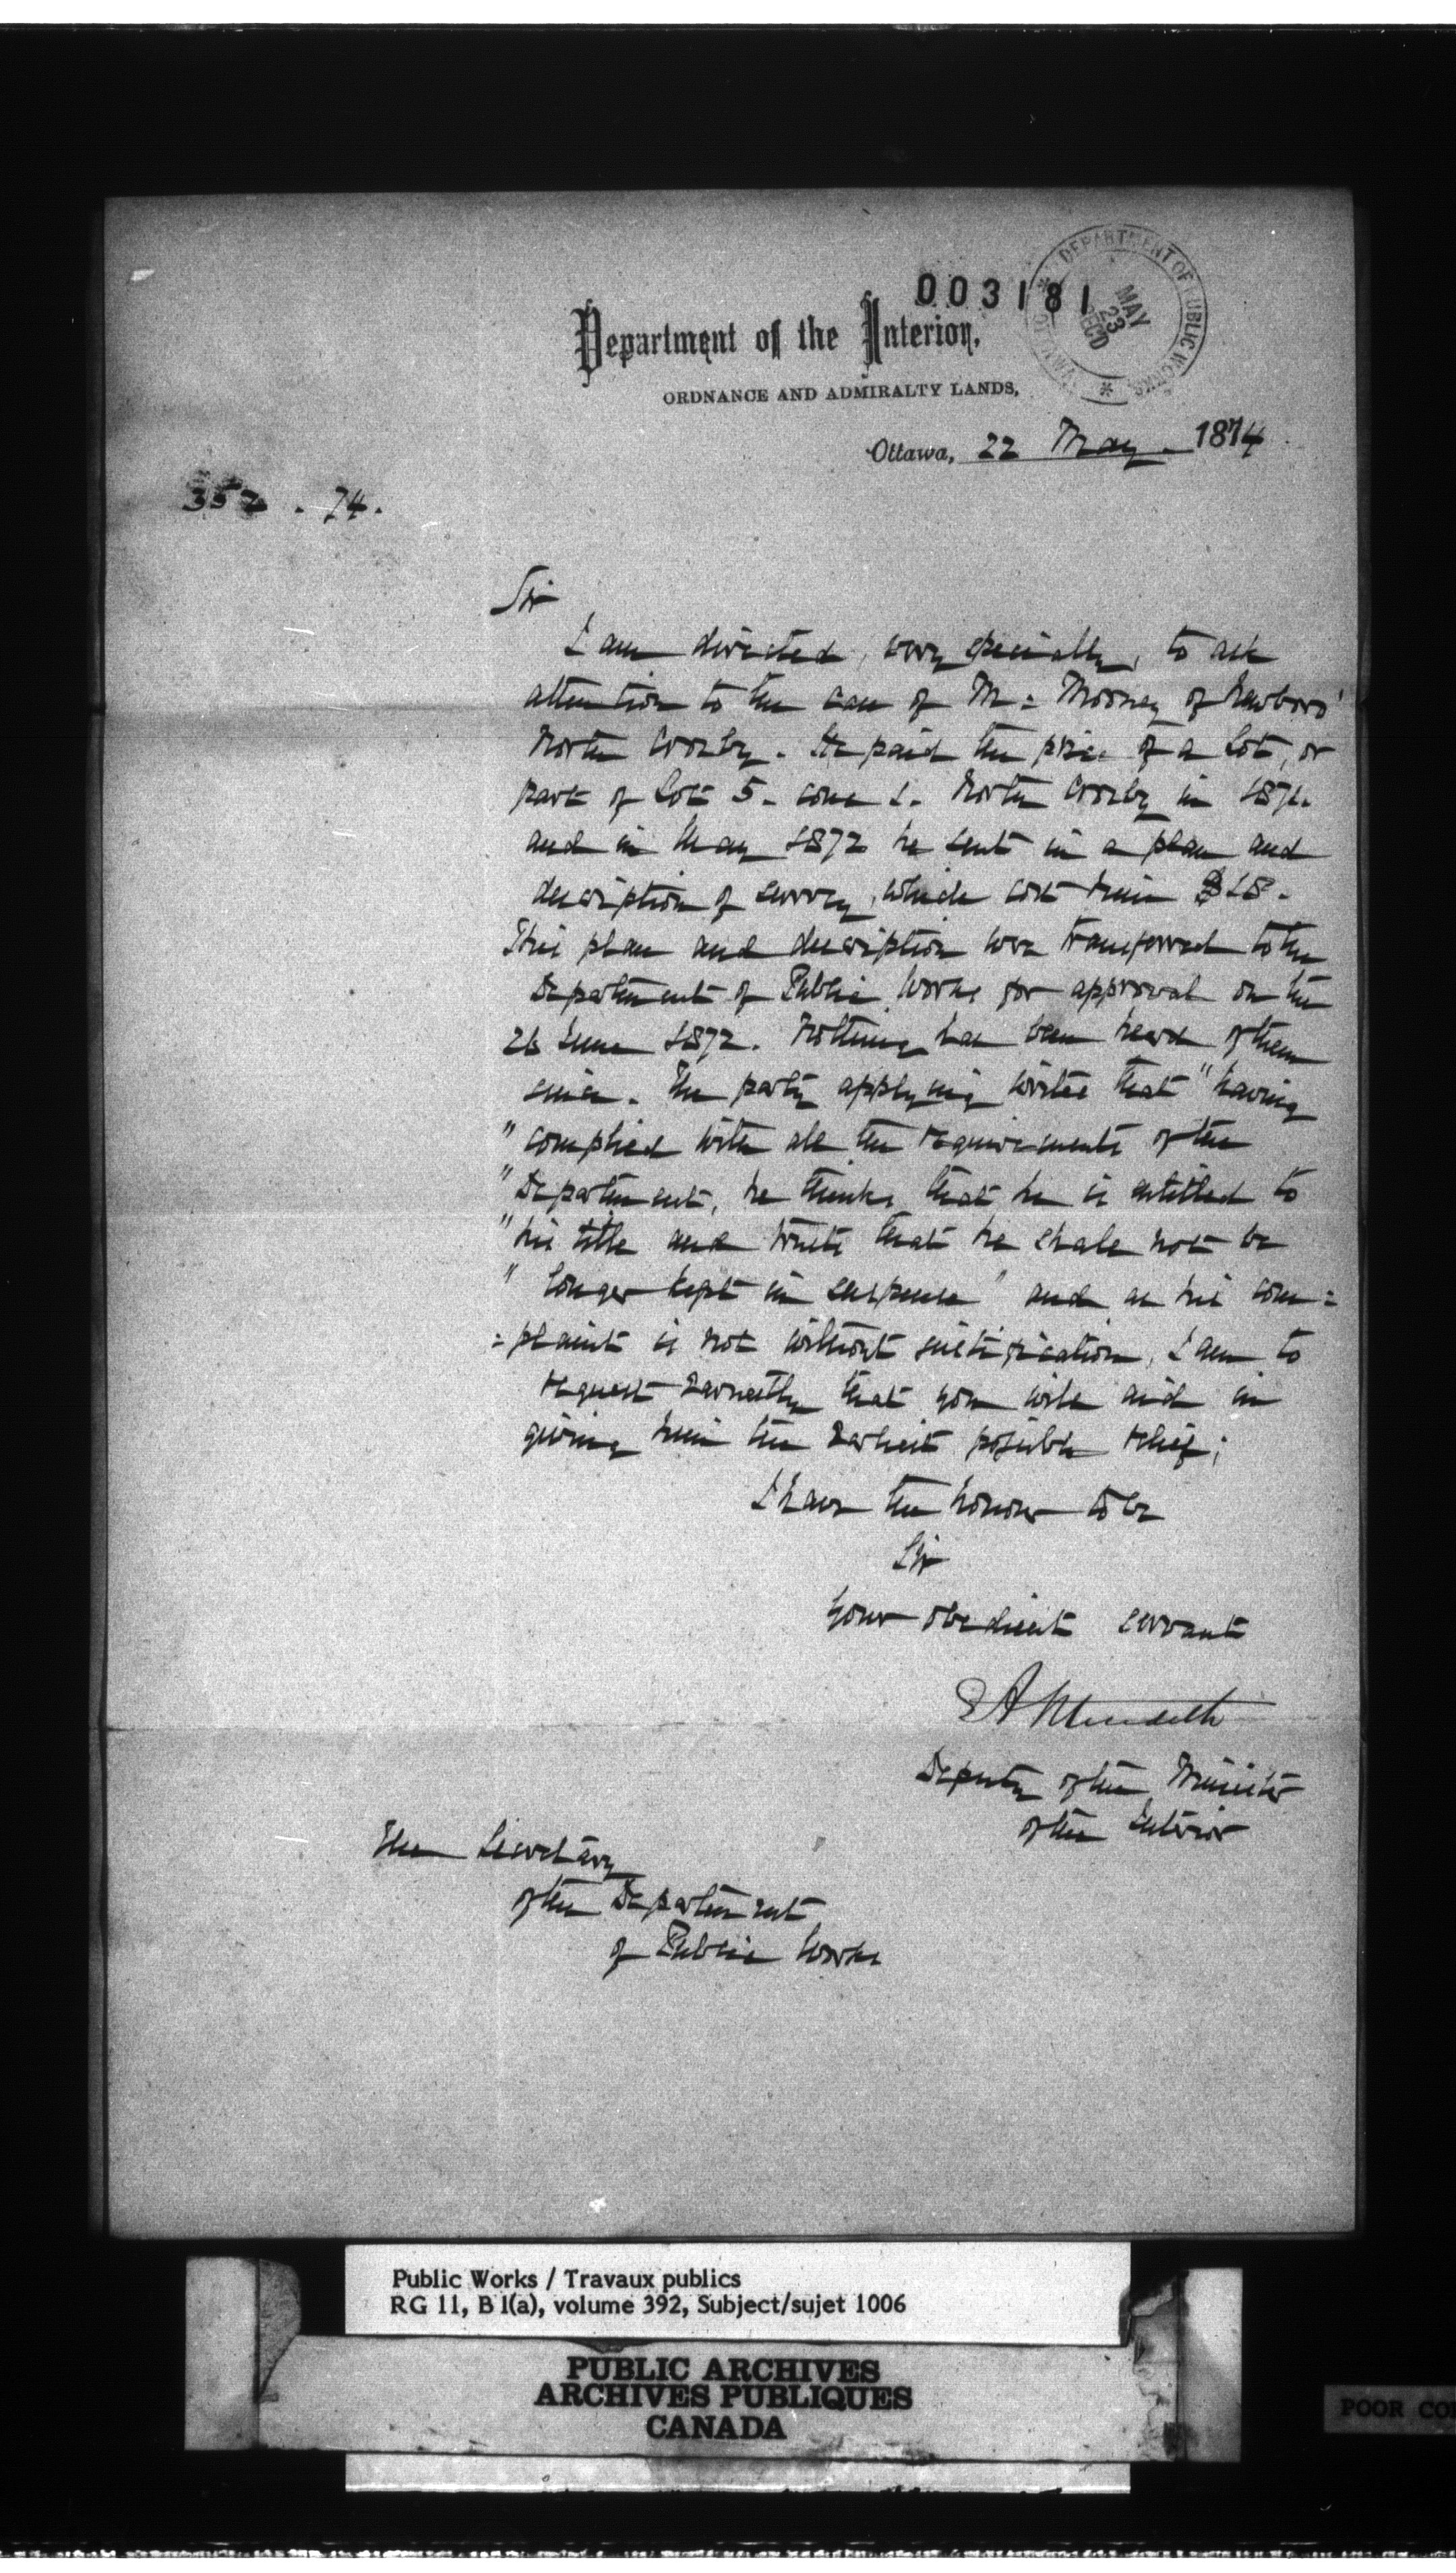 003181
DEPARTMENT OF PUBLIC WORKS
MAY
23
RECD
Department of the Interior,
ORDNANCE AND ADMIRALTY LANDS,
Ottawa, 22 May. 1874
352. 74.
Sir
I am directed, very specially, to ask
attention to the case of Mr= Mooney of Newboro'
North Crosby. He paid the price of a Lot, or
part of Lot 5. conc 1. North Crosby in 1871.
and in May 1872 he sent in a plan and
description of survey, which cost him $18.
This plan and description were transferred to the
Department of Public Works for approval on the
26 June 1872. Nothing has been heard of them
since. The party applying writes that "having
"complied with all the requirements of the
"Department, he thinks that he is entitled to
"his title and trusts that he shall not be
"longer kept in suspense" and as his com=
=plaint is not without justification, I am to
request earnestly that you will aid in
giving him the earliest possible relief;
I have the honour to be
Sir
Your obedient servant
EA Meredith
Deputy of the Minister
of the Interior
The Secretary
of the Department
of Public Works
Public Works / Travaux publics
RG 11, B 1(a), volume 392, Subject/sujet 1006
PUBLIC ARCHIVES
ARCHIVES PUBLIQUES
CANADA
POOR CO